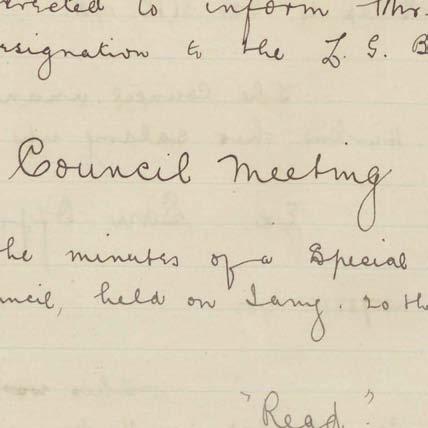 to inform Mr.
esignation to the L. G. B
Council Meeting
he minutes of a Special
uncil, held on Jany. 20 th
"Read"